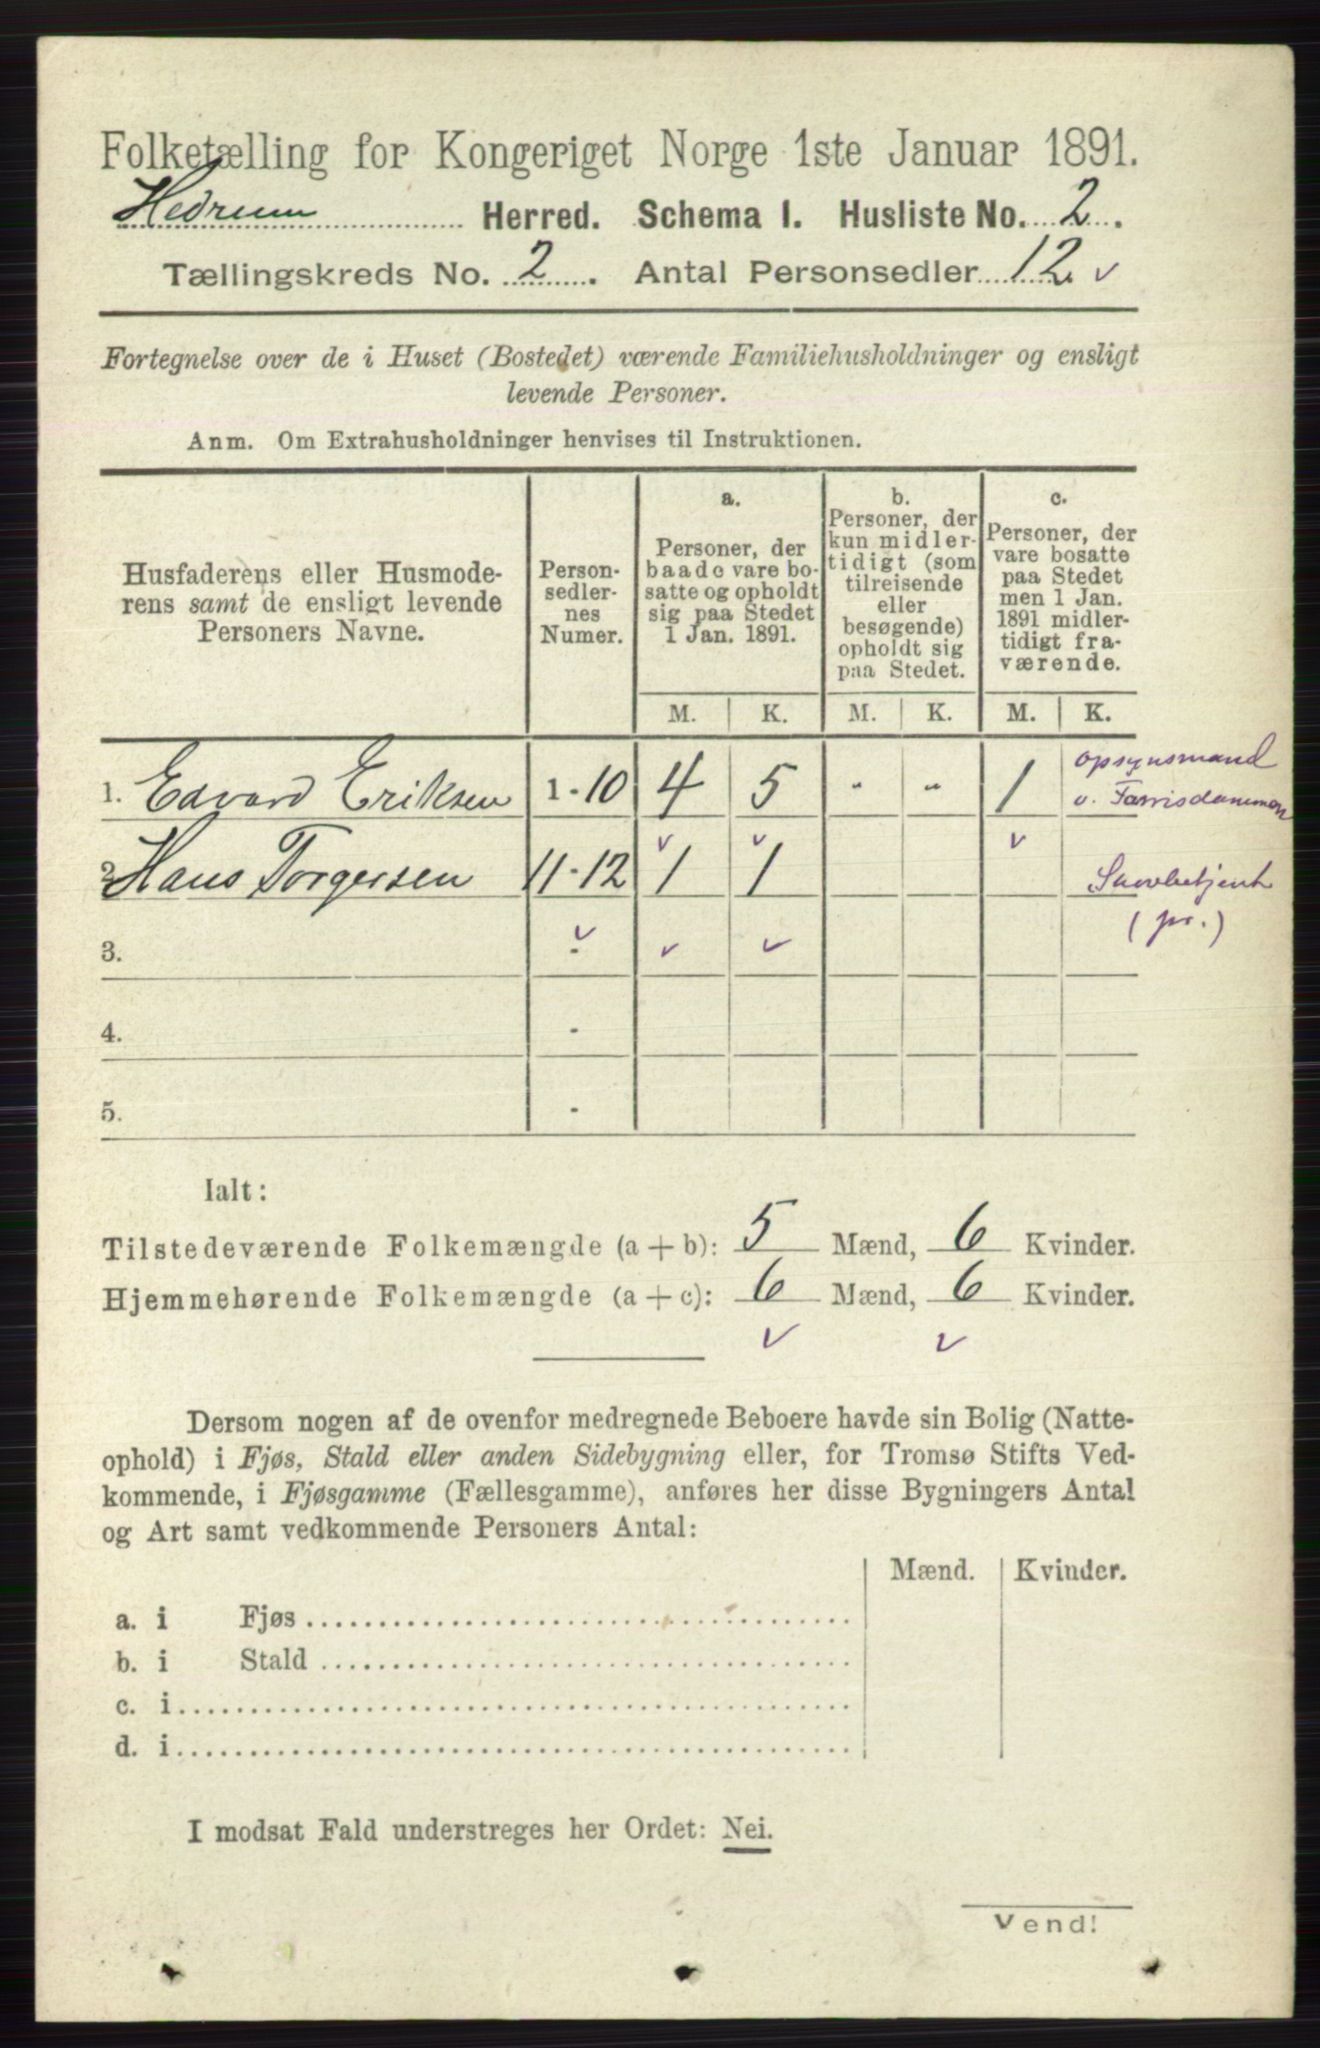 Folketælling for Kongeriget Norge 1ste Januar 1891.
Hedrum Herred. Schema I. Husliste No. 2.
Tællingskreds No. 2. Antal Personsedler 12. v
Fortegnelse over de i Huset (Bostedet) værende Familiehusholdninger og ensligt
levende Personer.
Anm. Om Extrahusholdninger henvises til Instruktionen.
Husfaderens eller Husmode-
rens samt de ensligt levende
Personers Navne.
Person-
sedler-
nes
Numer.
a.
Personer, der
baade vare bo-
satte og opholdt
sig paa Stedet
1 Jan. 1891.
b.
Personer, der
kun midler-
tidigt (som
tilreisende
eller
besøgende)
opholdt sig
paa Stedet.
c.
Personer, der
vare bosatte
paa Stedet
men 1 Jan.
1891 midler-
tidigt fra-
værende.
M. K. M. K. M. K.
1. Edvard Eriksen 1-10 4 5 " " 1 opsynsmand
v. Farrisdammen
v v v
2. Hans Torgersen 11-12 1 1 Skovbetjent
(pr.)
3. v - v v
4. -
5. -
Ialt:
Tilstedeværende Folkemængde (a + b): 5 Mænd, 6 Kvinder.
Hjemmehørende Folkemængde (a + c): 6 Mænd, 6 Kvinder.
v v
Dersom nogen af de ovenfor medregnede Beboere havde sin Bolig (Natte-
ophold) i Fjøs, Stald eller anden Sidebygning eller, for Tromsø Stifts Ved-
kommende, i Fjøsgamme (Fællesgamme), anføres her disse Bygningers Antal
og Art samt vedkommende Personers Antal:
Mænd. Kvinder.
a. i Fjøs
b. i Stald
c. i
d. i
I modsat Fald understreges her Ordet: Nei.
Vend!